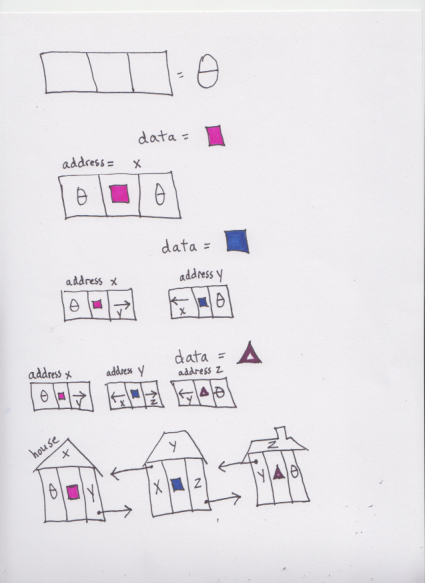 = θ
data =
address = x
θ θ
data =
address x address y
θ y x θ
data =
address x address y address z
θ y x z y θ
house x y z
θ y x z y θ